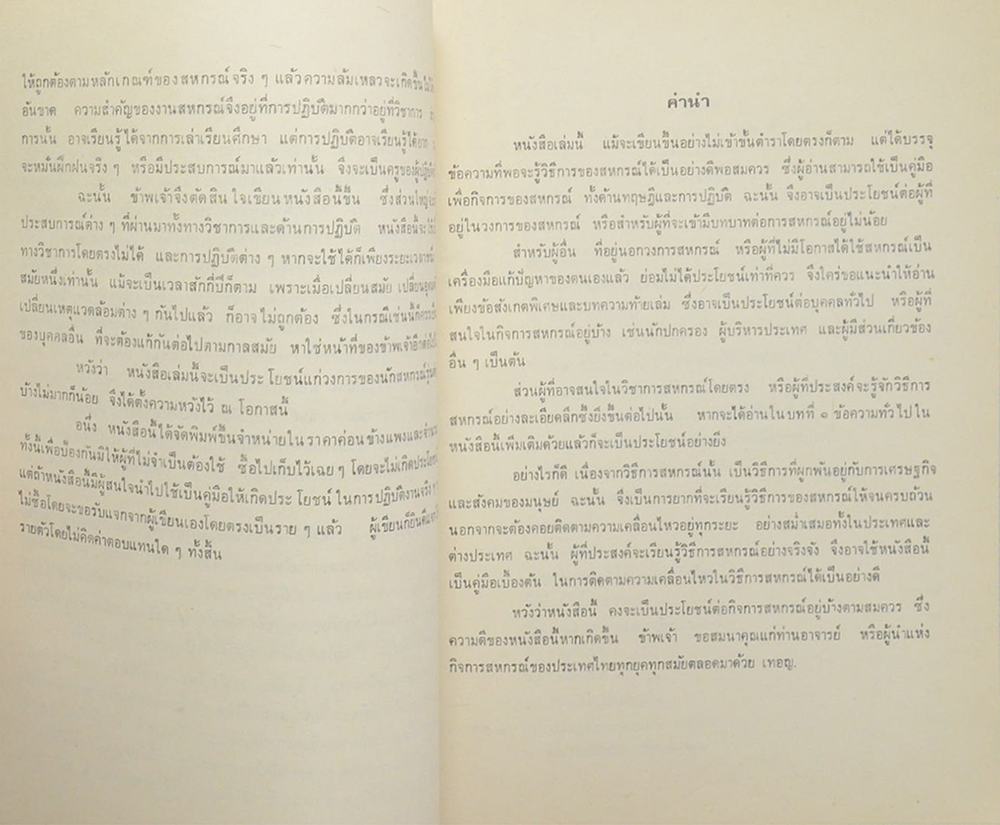 ให้ถูกต้องตามหลักเกณฑ์ของสหกรณ์จริง ๆ แล้วความล้มเหลวจะเกิดขึ้น
อันขาด ความสำคัญของงานสหกรณ์จึงอยู่ที่การปฏิบัติมากกว่าอยู่ที่วิชาการ
การนั้น อาจเรียนรู้ได้จากการเล่าเรียนศึกษา แต่การปฏิบัติอาจเรียนรู้ได้ยาก
จะหมั่นฝึกฝนจริง ๆ หรือมีประสบการณ์มาแล้วเท่านั้น จึงจะเป็นครูของผู้ปฏิบัติ
ฉะนั้น ข้าพเจ้าจึงตัดสินใจเขียนหนังสือนี้ขึ้น ซึ่งส่วนใหญ่
ประสบการณ์ต่าง ๆ ที่ผ่านมาทั้งทางวิชาการและด้านการปฏิบัติ หนังสือนี้จะ
ทางวิชาการโดยตรงไม่ได้ และการปฏิบัติต่าง ๆ หากจะใช้ได้ก็เพียงระยะเวลา
สมัยหนึ่งเท่านั้น แม้จะเป็นเวลาสักกี่ปีก็ตาม เพราะเมื่อเปลี่ยนสมัย เปลี่ยน
เปลี่ยนเหตุแวดล้อมต่าง ๆ กันไปแล้ว ก็อาจไม่ถูกต้อง ซึ่งในกรณีเช่นนี้ก็
ของบุคคลอื่น ที่จะต้องแก้กันต่อไปตามกาลสมัย หาใช่หน้าที่ของข้าพเจ้า
หวังว่า หนังสือเล่มนี้จะเป็นประโยชน์แก่วงการของนักสหกรณ์
บ้างไม่มากก็น้อย จึงได้ตั้งความหวังไว้ ณ โอกาสนี้
อนึ่ง หนังสือนี้ได้จัดพิมพ์ขึ้นจำหน่ายในราคาค่อนข้างแพง
ทั้งนี้เพื่อป้องกันมิให้ผู้ที่ไม่จำเป็นต้องใช้ ซื้อไปเก็บไว้เฉย ๆ โดยจะไม่เกิดประโยชน์
แต่ถ้าหนังสือนี้มีผู้สนใจนำไปใช้เป็นคู่มือให้เกิดประโยชน์ในการปฏิบัติงานจริง
ไม่ซื้อโดยจะขอรับแจกจากผู้เขียนเองโดยตรงเป็นราย ๆ แล้ว ผู้เขียนก็ยินดี
รายตัวโดยไม่คิดค่าตอบแทนใด ๆ ทั้งสิ้น
คำนำ
หนังสือเล่มนี้ แม้จะเขียนขึ้นอย่างไม่เข้าขั้นตำราโดยตรงก็ตาม แต่ได้บรรจุ
ข้อความที่พอจะรู้วิธีการของสหกรณ์ได้เป็นอย่างดีพอสมควร ซึ่งผู้อ่านสามารถใช้เป็นคู่มือ
เพื่อกิจการของสหกรณ์ ทั้งด้านทฤษฎีและการปฏิบัติ ฉะนั้น จึงอาจเป็นประโยชน์ต่อผู้ที่
อยู่ในวงการของสหกรณ์ หรือสำหรับผู้ที่จะเข้ามีบทบาทต่อการสหกรณ์อยู่ไม่น้อย
สำหรับผู้อื่น ที่อยู่นอกวงการสหกรณ์ หรือผู้ที่ไม่มีโอกาสได้ใช้สหกรณ์เป็น
เครื่องมือแก้ปัญหาของตนเองแล้ว ย่อมไม่ได้ประโยชน์เท่าที่ควร จึงใคร่ขอแนะนำให้อ่าน
เพียงข้อสังเกตพิเศษและบทความท้ายเล่ม ซึ่งอาจเป็นประโยชน์ต่อบุคคลทั่วไป หรือผู้ที่
สนใจในกิจการสหกรณ์อยู่บ้าง เช่นนักปกครอง ผู้บริหารประเทศ และผู้มีส่วนเกี่ยวข้อง
อื่น ๆ เป็นต้น
ส่วนผู้ที่อาจสนใจในวิชาการสหกรณ์โดยตรง หรือผู้ที่ประสงค์จะรู้จักวิธีการ
สหกรณ์อย่างละเอียดลึกซึ้งยิ่งขึ้นต่อไปนั้น หากจะได้อ่านในบทที่ ๑ ข้อความทั่วไปใน
หนังสือนี้เพิ่มเติมด้วยแล้วก็จะเป็นประโยชน์อย่างยิ่ง
อย่างไรก็ดี เนื่องจากวิธีการสหกรณ์นั้น เป็นวิธีการที่ผูกพันอยู่กับการเศรษฐกิจ
และสังคมของมนุษย์ ฉะนั้น จึงเป็นการยากที่จะเรียนรู้วิธีการของสหกรณ์ให้จนครบถ้วน
นอกจากจะต้องคอยติดตามความเคลื่อนไหวอยู่ทุกระยะ อย่างสม่ำเสมอทั้งในประเทศและ
ต่างประเทศ ฉะนั้น ผู้ที่ประสงค์จะเรียนรู้วิธีการสหกรณ์อย่างจริงจัง จึงอาจใช้หนังสือนี้
เป็นคู่มือเบื้องต้น ในการติดตามความเคลื่อนไหวในวิธีการสหกรณ์ได้เป็นอย่างดี
หวังว่าหนังสือนี้ คงจะเป็นประโยชน์ต่อกิจการสหกรณ์อยู่บ้างตามสมควร ซึ่ง
ความดีของหนังสือนี้หากเกิดขึ้น ข้าพเจ้า ขอสมนาคุณแก่ท่านอาจารย์ หรือผู้นำแห่ง
กิจการสหกรณ์ของประเทศไทยทุกยุคทุกสมัยตลอดมาด้วย เทอญ.